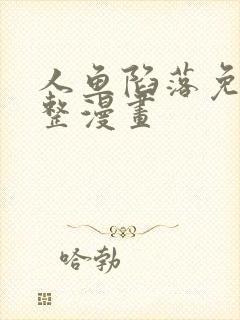 人鱼陷落免
整漫畫
哈勃